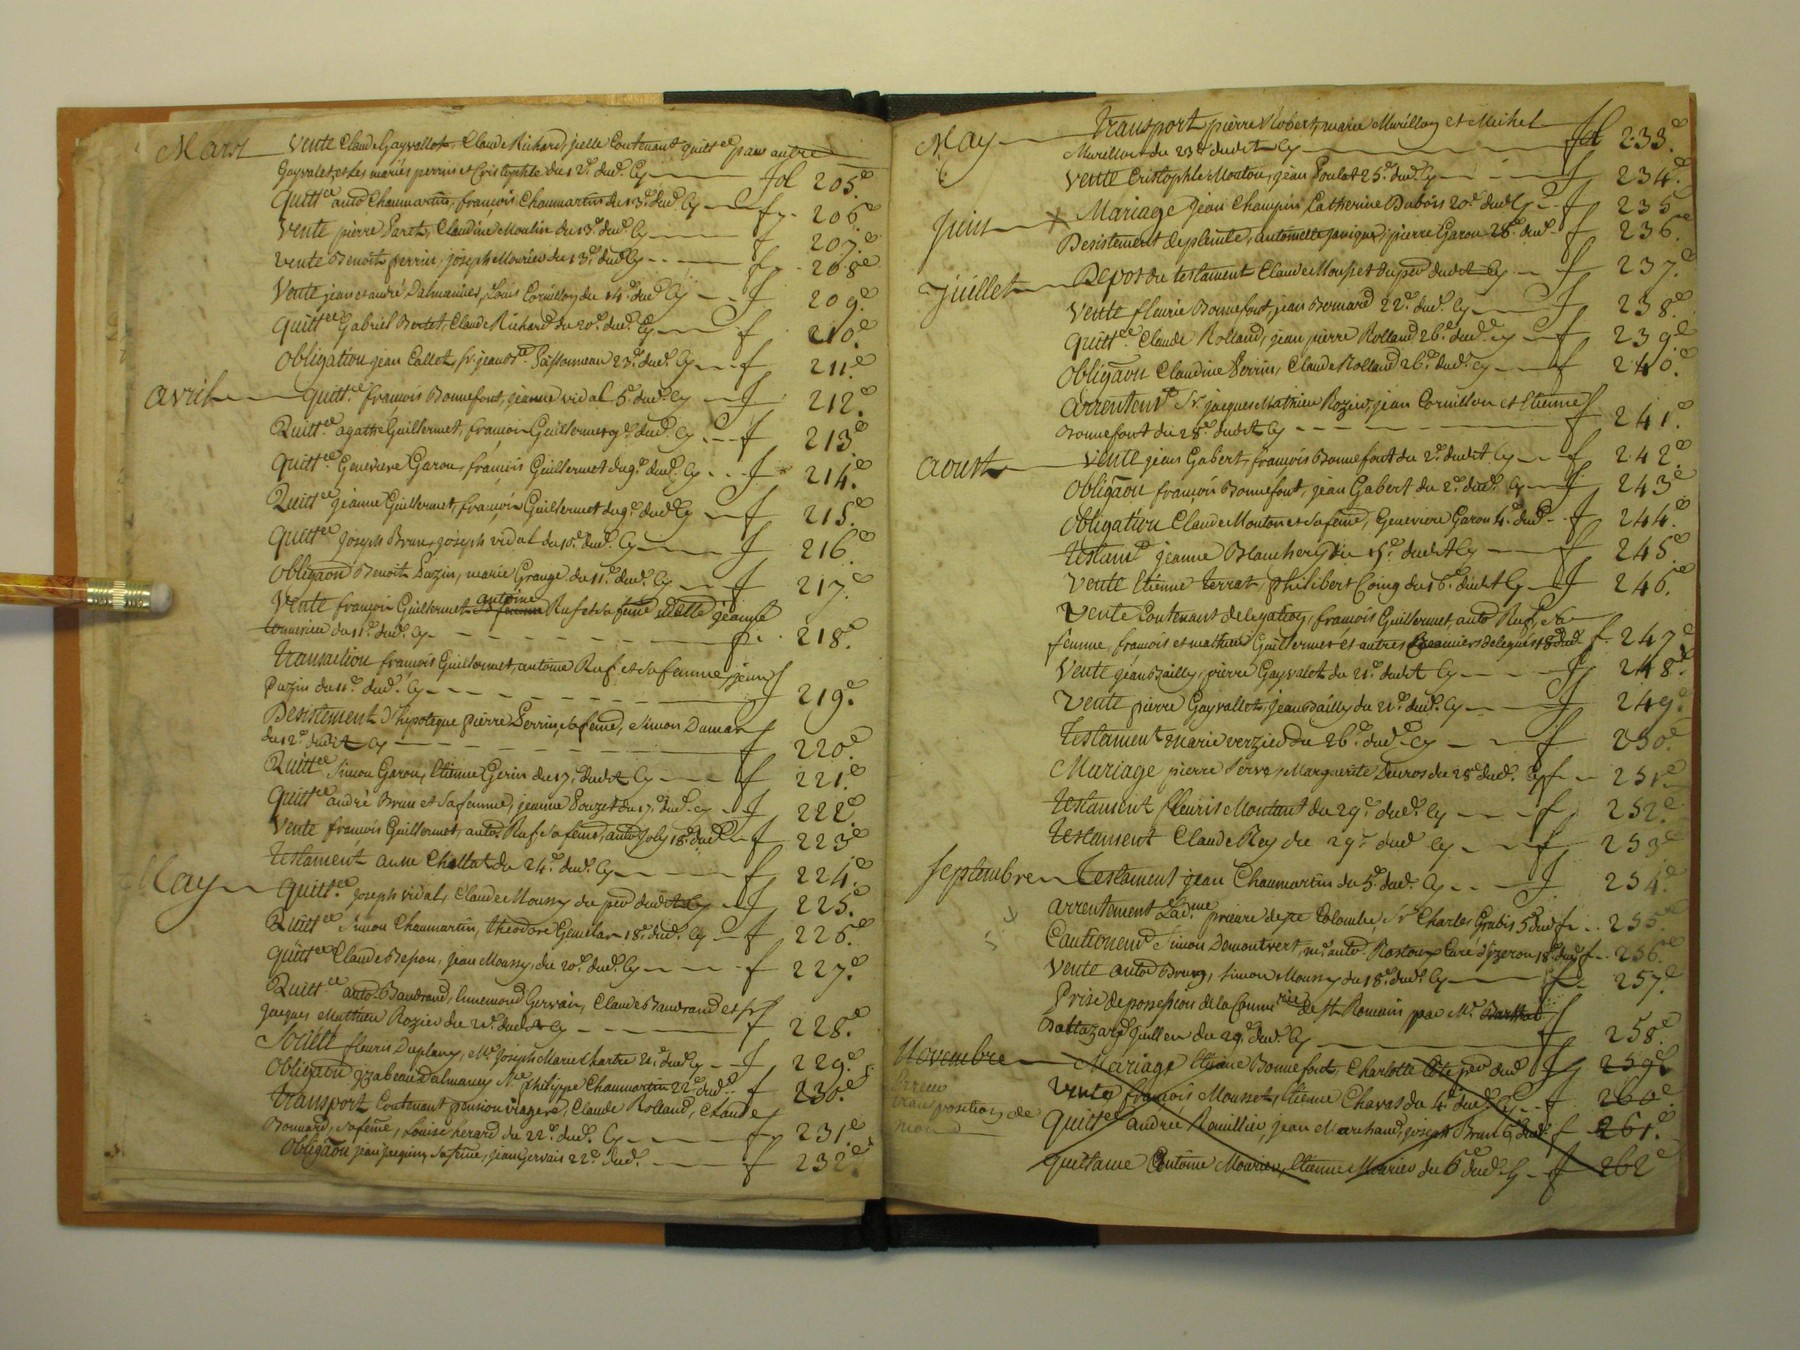 Mars Vente Claude Gayvallet, Claude Richard, icelle Contenant quitt.ce par autre
Gayvalet, et les mariés perrin et Cristophle du 12.e dud. Cy fol 205.e
Quitt.ce anto. Chaumartin, françois Chaumartin du 13.e dud. Cy f 206.e
Vente pierre Paret, Claudine Moulin du 13.e dud. Cy f 207.e
Vente Benoit perrin, joseph Mourier du 13.e dud. Cy f 208.e
Vente jean et andré Dalmanies, Louis Cornillon du 14.e dud. Cy f 209.e
Quitt.ce Gabriel Bertet, Claude Richard du 20.e dud. Cy f 210.e
Obligation jean Callet, sr. jean B.te 23.e dud. Cy f 211.e
avril quitt.ce françois Bonnefont, jeanne vidal 5.e dud. Cy f 212.e
Quitt.ce agathe Guillermet, françois Guillermet 9.e dud. Cy f 213.e
Quitt.ce Genevieve Garon, françois Guillermet du 9.e dud. Cy f 214.e
Quitt.ce jeanne Guillermet, françois Guillermet du 9.e dud. Cy f 215.e
Quitt.ce joseph Brun, joseph vidal du 10.e dud. Cy f 216.e
Obligaon Benoit Pazin, marie Grange du 11.e dud. Cy f 217.e
Vente françois Guillermet, antoine Ruf et sa feme jeanne
du 11.e dud. Cy f 218.e
Transaction françois Guillermet, antoine Ruf et sa femme, jean
Pazin du 11.e dud. Cy f 219.e
Desistement d'hypoteque pierre Perrin, sa feme, Simon Dumas
du 12.e dudit Cy f 220.e
Quitt.ce Simon Garon, Etienne Gerin du 17. dudit Cy f 221.e
Quitt.ce andré Brun et sa femme, jeanne Pouzet du 17.e dud. Cy f 222.e
Vente françois Guillermet, anto. Ruf, sa feme, anto. joly 18.e dud. f 223.e
Testament anne Chollat du 24.e dud. Cy f 224.e
May Quitt.ce joseph vidal, Claude Moussy du per dudit Cy f 225.e
Quitt.ce Simon Chaumartin, theodore 18.e dud. Cy f 226.e
Quitt.ce Claude Bepon, jean Moussy, du 20.e dud. Cy f 227.e
Quitt.ce anto. Baudrand, Gervais, Claude Baudrand et sr
jacques Mathieu Rozier du 21.e dudit Cy f 228.e
Société fleuris Duplany, Me joseph Marie Chartre 21.e dud. Cy f 229.e
Obligaon yzabeau Dalmanay Me philippe Chaumartin 22.e dud. f 230.e
Transport Contenant pension viagere, Claude Rolland, Claude
Bonnard, sa feme, Louise herard du 22.e dud. Cy f 231.e
Obligaon jean jacquin, sa feme, jean Gervais 22.e dud. f 232.e
May Transport pierre Robert, marie Murillon et Michel
Murillon du 23.e dudit Cy fol 233.e
Vente Cristophle Mouton, jean Poulat 25.e dud. Cy f 234.e
Juin Mariage jean Champin Catherine Dubois 20.e dud. Cy f 235.e
Desistement de plainte, antoinette janique, pierre Garon 28.e dud. f 236.e
Juillet Depos du testament Claude Mousset du per dudit Cy f 237.e
Vente fleurie Bonnefont, jean Bernard 22.e dud. Cy f 238.e
Quitt.ce Claude Rolland, jean pierre Rolland 26.e dud. Cy f 239.e
Obligaon Claudine Perrin, Claude Rolland 26.e dud. Cy f 240.e
Arrentemt. Sr. jacques Mathieu Rozier, jean Cornillon et Etienne
Bonnefont du 28.e dudit Cy f 241.e
aoust Vente jean Gabert, françois Bonnefont du 2.e dudit Cy f 242.e
Obligaon françois Bonnefont, jean Gabert du 2.e dud. Cy f 243.e
Obligation Claude Mouton et sa feme, Genevieve Garon 4.e dud. f 244.e
Testamt. jeanne du 15.e dudit Cy f 245.e
Vente Etienne terrat, philibert Coing du 16.e dudit Cy f 246.e
Vente Contenant delegation, françois Guillermet, anto Ruf, sa
femme, françois et mathieu Guillermet et autres Creanciers delegués 18.e dud. f 247.e
Vente jean Bailly, pierre Gayvalet du 21.e dudit Cy f 248.e
Vente pierre Gayvallet, jean Bailly du 21.e dud. Cy f 249.e
Testament marie verzier du 26.e dud. Cy f 250.e
Mariage pierre Serve, Marguerite du 28.e dud. Cy f 251.e
Testament fleuris Moutant du 29.e dud. Cy f 252.e
Testament Claude Rey du 29.e dud. Cy f 253.e
Septembre Testament jean Chaumartin du 5.e dud. Cy f 254.e
arrentement Lad.me prieure de ste Colombe, Sr. Charles Grubis 5.e dud. f 255.e
Cautionemt. Simon Domontvert, me. anto. Rostoux Curé d'yzeron 18.e dud. f 256.e
Vente anto. Brun, Simon Moussy du 18.e dud. Cy f 257.e
Prise de possession de la Commrie. de St. Romain par Mr. Barthal
Baltazard Guillen du 29.e dud. Cy f 258.e
Novembre Mariage Etienne Bonnefont, Charlotte per dud. Cy 259.e
Erreur
transposition de
mois
Vente françois Mousset, Etienne Chavas du 4.e dud. Cy f 260.e
Quitt.ce andré Rouillier, jean Marchand, joseph Brun 5.e dud. f 261.e
quittance antoine Mourier, Etienne Mourier du 6.e dud. Cy f 262.e